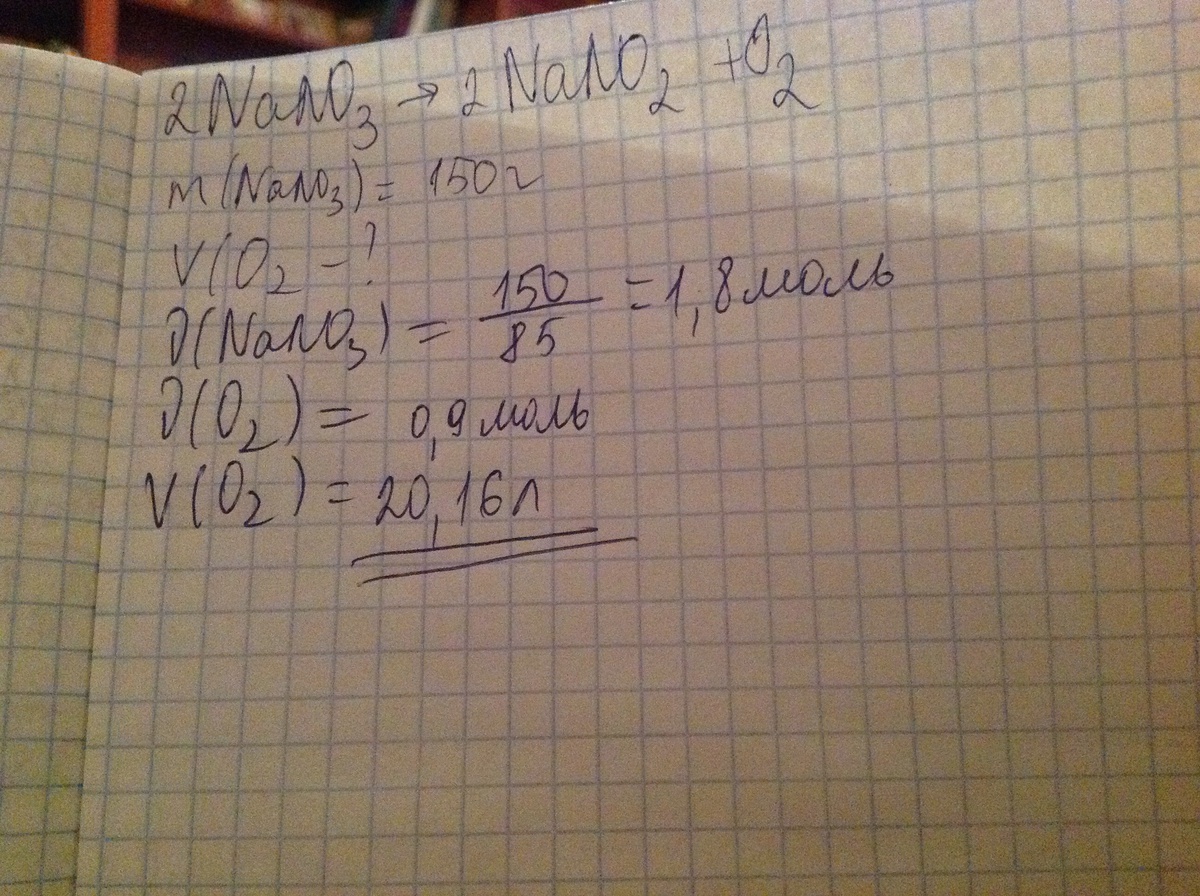 2NaNO₃ → 2NaNO₂ + O₂
m(NaNO₃) = 150г
V(O₂ - ?
ν(NaNO₃) = 150/85 = 1,8моль
ν(O₂) = 0,9моль
V(O₂) = 20,16л